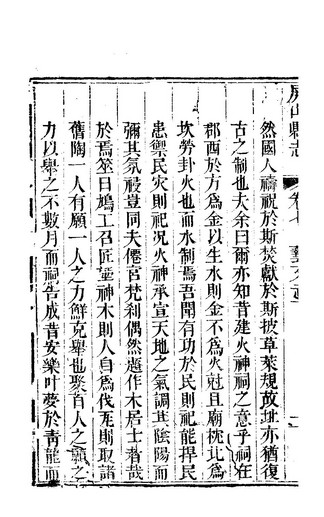 屏山縣志 卷七 藝文志
然國人禱祝於斯焚獻於斯披草萊規故址亦猶復
古之制也夫余曰爾亦知昔建火神祠之意乎祠在
郡西於方為金以生水則金不為火尅且廟枕北為
坎勞卦火也而水制焉吾聞有功於民則祀能捍民
患禦民灾則祀况火神承宣天地之氣調其陰陽而
彌其氛祲豈同夫僊宮梵刹偶然趨作木居士者哉
於焉筮日鳩工召匠莝神木則人自為伐充則取諸
舊陶一人有願一人之力鮮克舉也聚百人之願之
力以舉之不數月而祠告成昔安樂叶夢於青龍而